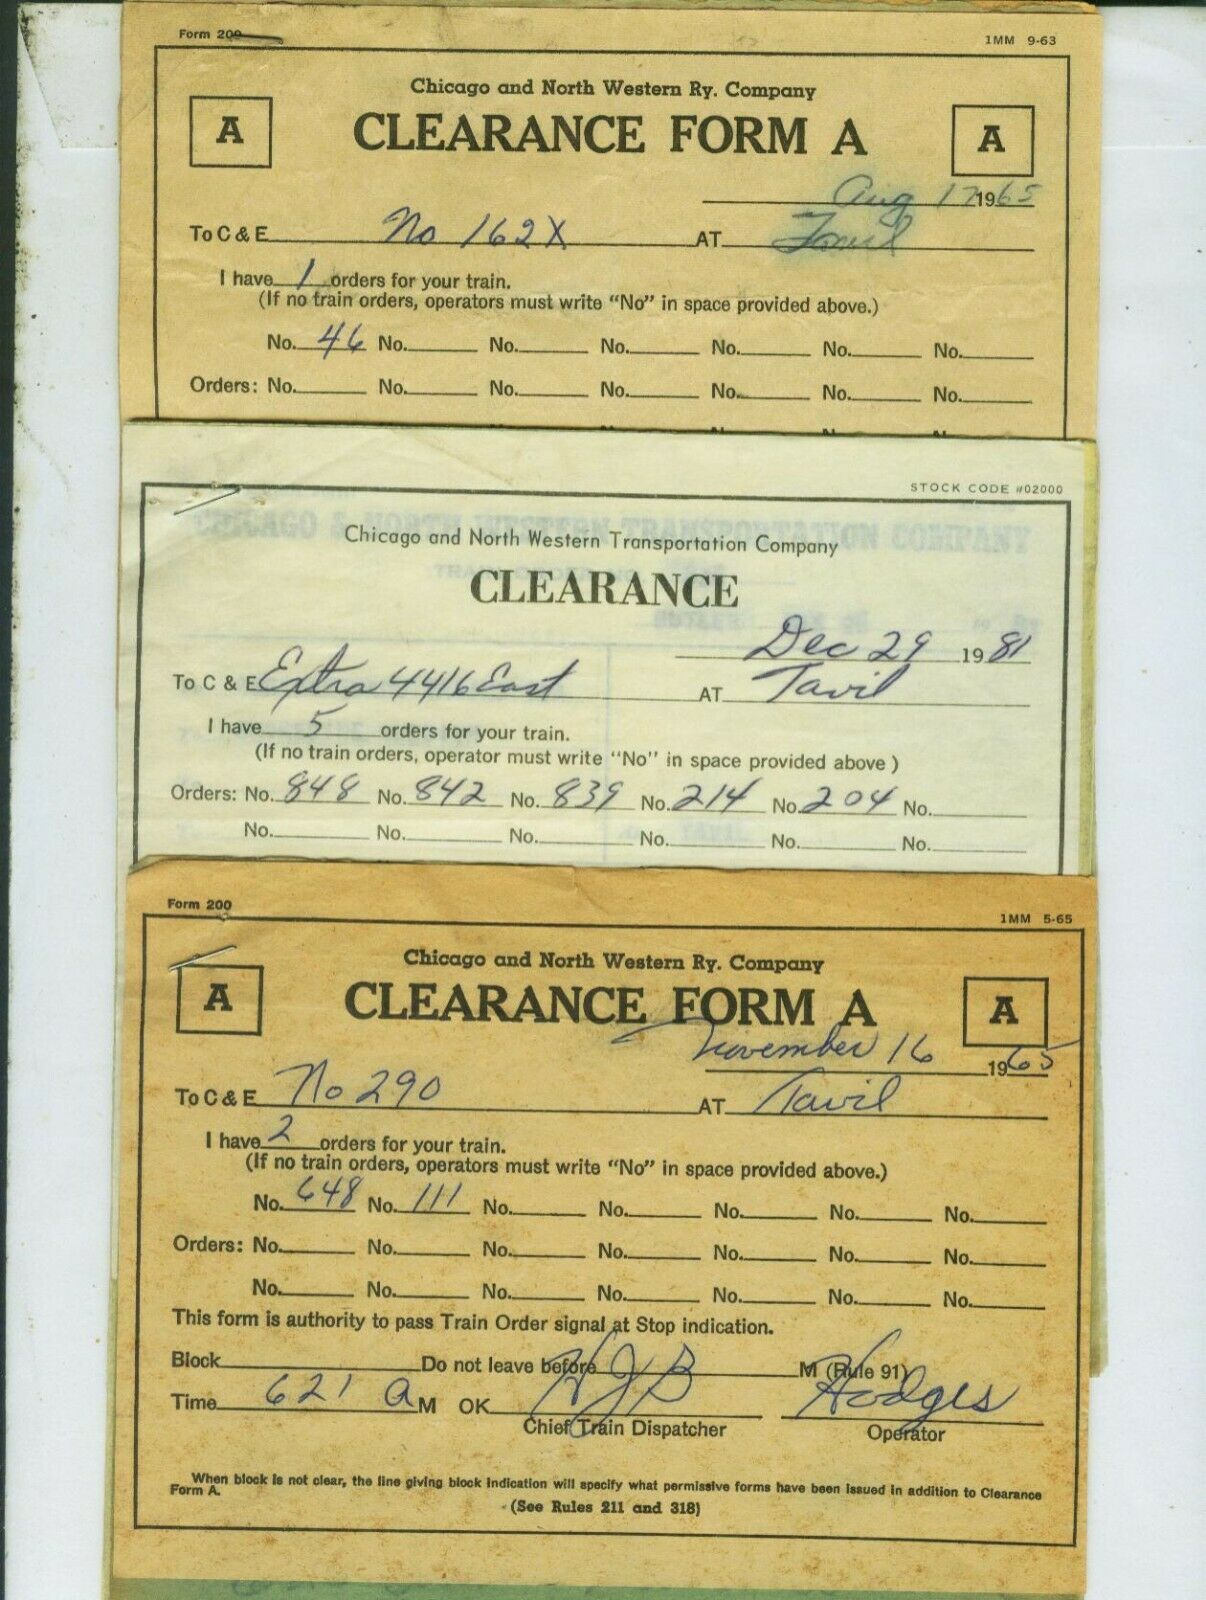 Form 200 1MM 9-63
Chicago and North Western Ry. Company
A CLEARANCE FORM A A
Aug 17 1965
To C & E No 162X AT
I have 1 orders for your train.
(If no train orders, operators must write "No" in space provided above.)
No. 46 No. No. No. No. No. No.
Orders: No. No. No. No. No. No. No.
STOCK CODE #02000
Chicago and North Western Transportation Company
CLEARANCE
Dec 29 1981
To C & E Extra 4416 East AT Tavil
I have 5 orders for your train.
(If no train orders, operator must write "No" in space provided above )
Orders: No. 848 No. 842 No. 839 No. 214 No. 204 No.
No. No. No. No. No. No.
Form 200 1MM 5-65
Chicago and North Western Ry. Company
A CLEARANCE FORM A A
November 16 1965
To C & E No 290 AT Tavil
I have 2 orders for your train.
(If no train orders, operators must write "No" in space provided above.)
No. 648 No. 111 No. No. No. No. No.
Orders: No. No. No. No. No. No. No.
No. No. No. No. No. No. No.
This form is authority to pass Train Order signal at Stop indication.
Block Do not leave before M (Rule 91)
Time 621 A M OK HJB Hodges
Chief Train Dispatcher Operator
When block is not clear, the line giving block indication will specify what permissive forms have been issued in addition to Clearance
Form A.
(See Rules 211 and 318)